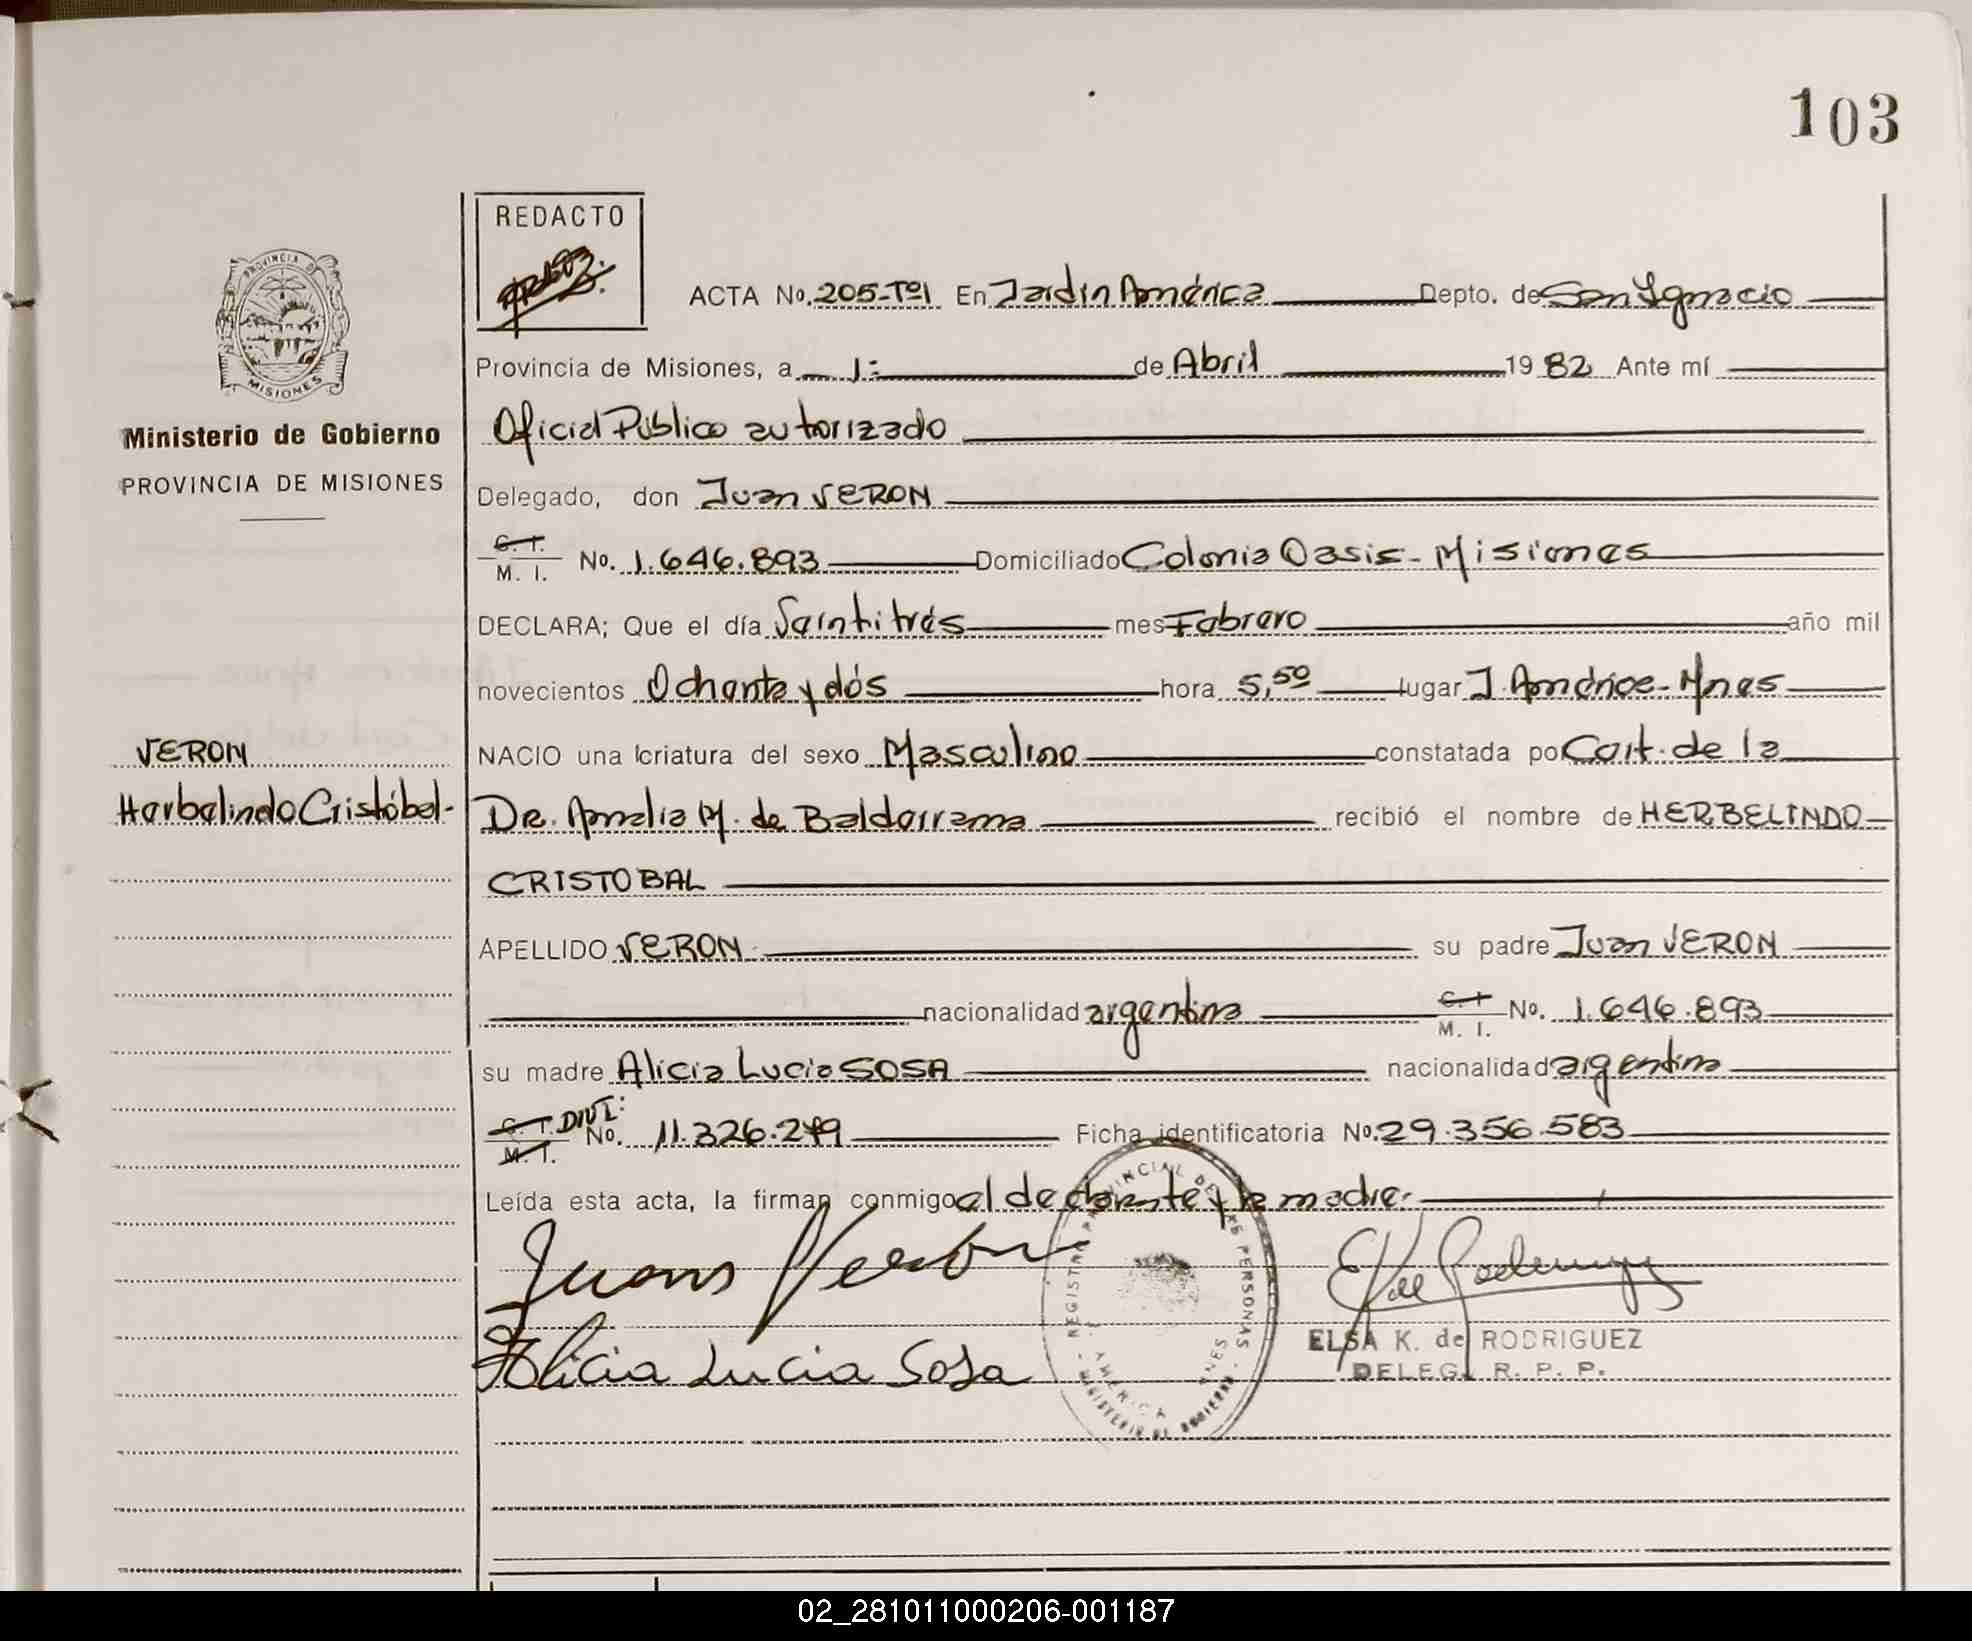 103
REDACTO
ACTA No. 205-Tº1 En Jardin América Depto. de San Ignacio
Provincia de Misiones, a 1: de Abril 1982 Ante mí
Oficial Público autorizado
Delegado, don Juan VERON
C. I. M. I. No. 1.646.893 Domiciliado Colonia Oasis - Misiones
DECLARA; Que el día Veintitrés mes Febrero año mil
novecientos Ochenta y dós hora 5,50 lugar J. América - Mnes
NACIO una criatura del sexo Masculino constatada po Cert. de la
Dr. Amalia M. de Balderrama recibió el nombre de HERBELINDO
CRISTOBAL
APELLIDO VERON su padre Juan VERON
nacionalidad argentina C. I. M. I. No. 1.646.893
su madre Alicia Lucia SOSA nacionalidad argentina
C. I. M. I. DNI: No. 11.326.279 Ficha identificatoria No. 29.356.583
Leída esta acta, la firman conmigo el declarante y la madre.
Juan Veron
Alicia Lucia Sosa
ELSA K. de RODRIGUEZ
DELEG. R. P. P.
REGISTRO PROVINCIAL DE LAS PERSONAS
MINISTERIO DE GOBIERNO
AMERICA
PROVINCIA DE
MISIONES
Ministerio de Gobierno
PROVINCIA DE MISIONES
VERON
Herbelindo Cristóbal-
02_281011000206-001187